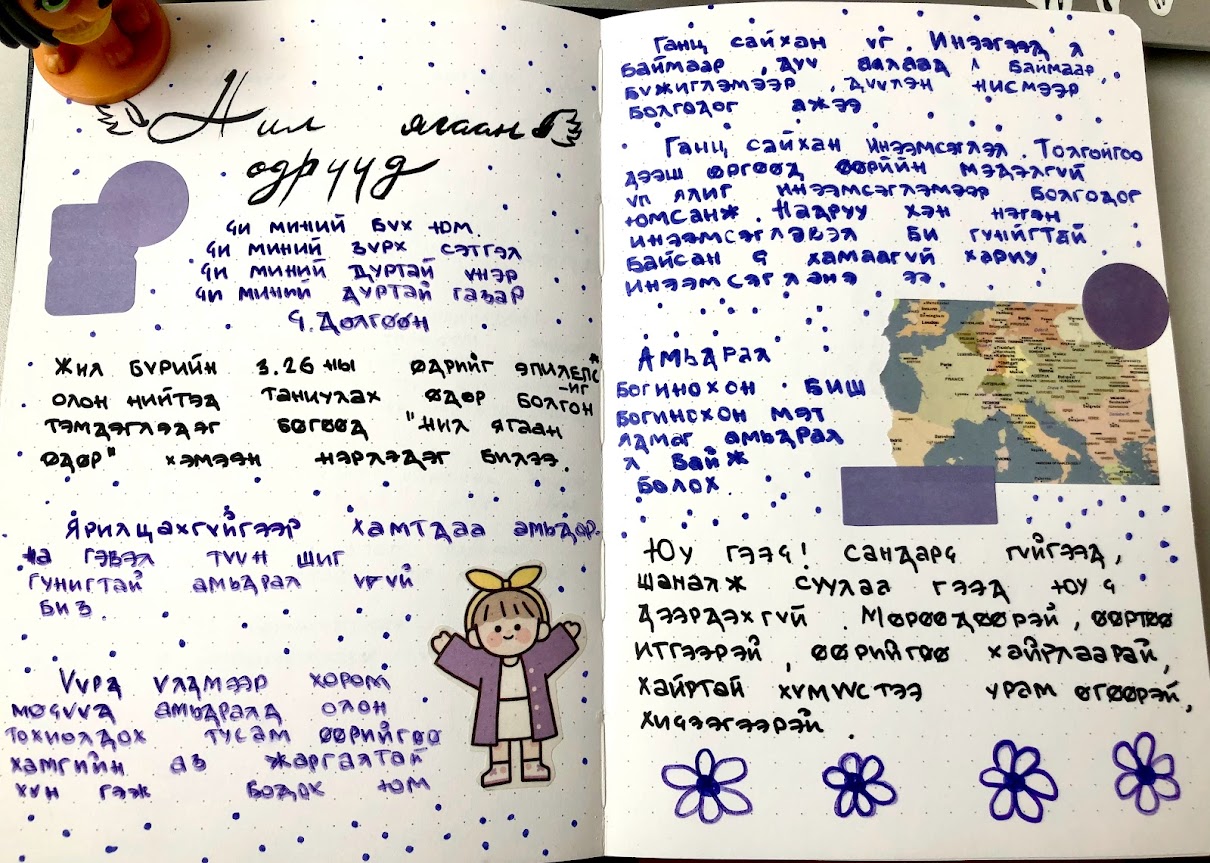 Нил ягаан
өдрүүд
Чи миний бүх юм.
Чи миний зүрх сэтгэл
Чи миний дуртай үнэр
Чи миний дуртай газар
Ч. Долгоон
Жил бүрийн 3.26 ны өдрийг эпилепс
-иг
олон нийтэд таниулах өдөр болгон
тэмдэглэдэг бөгөөд "нил ягаан
өдөр" хэмээн нэрлэдэг билээ.
Ярилцахгүйгээр хамтдаа амьдар-
на гэвэл түүн шиг
гунигтай амьдрал үгүй
биз
Үүрд үлдмээр хором
мөчүүд амьдралд олон
тохиолдох тусам өөрийгөө
хамгийн аз жаргалтай
хүн гэж бодох юм
Ганц сайхан үг. Инээгээд л
баймаар, дуу аялаад л баймаар,
бүжиглэмээр, дүүлэн нисмээр
болгодог ажээ
Ганц сайхан инээмсэглэл. Толгойгоо
дээш өргөөд өөрийн мэдэлгүй
үл ялиг инээмсэглэмээр болгодог
юмсанж. Надруу хэн нэгэн
инээмсэглэвэл би гунигтай
байсан ч хамаагүй хариу
инээмсэглэнэ ээ.
Амьдрал
богинохон биш
богинохон мэт
ядмаг амьдрал
л байж
болох.
Юу гээч! Сандарч гүйгээд,
шаналж суулаа гээд юу ч
дээрдэхгүй. Мөрөөдөөрэй, өөртөө
итгээрэй, өөрийгөө хайрлаарай,
хайртай хүмүүстээ урам өгөөрэй,
хичээгээрэй.
London
Paris
FRANCE
Berlin
Vienna
AUSTRIA
Madrid
Barcelona